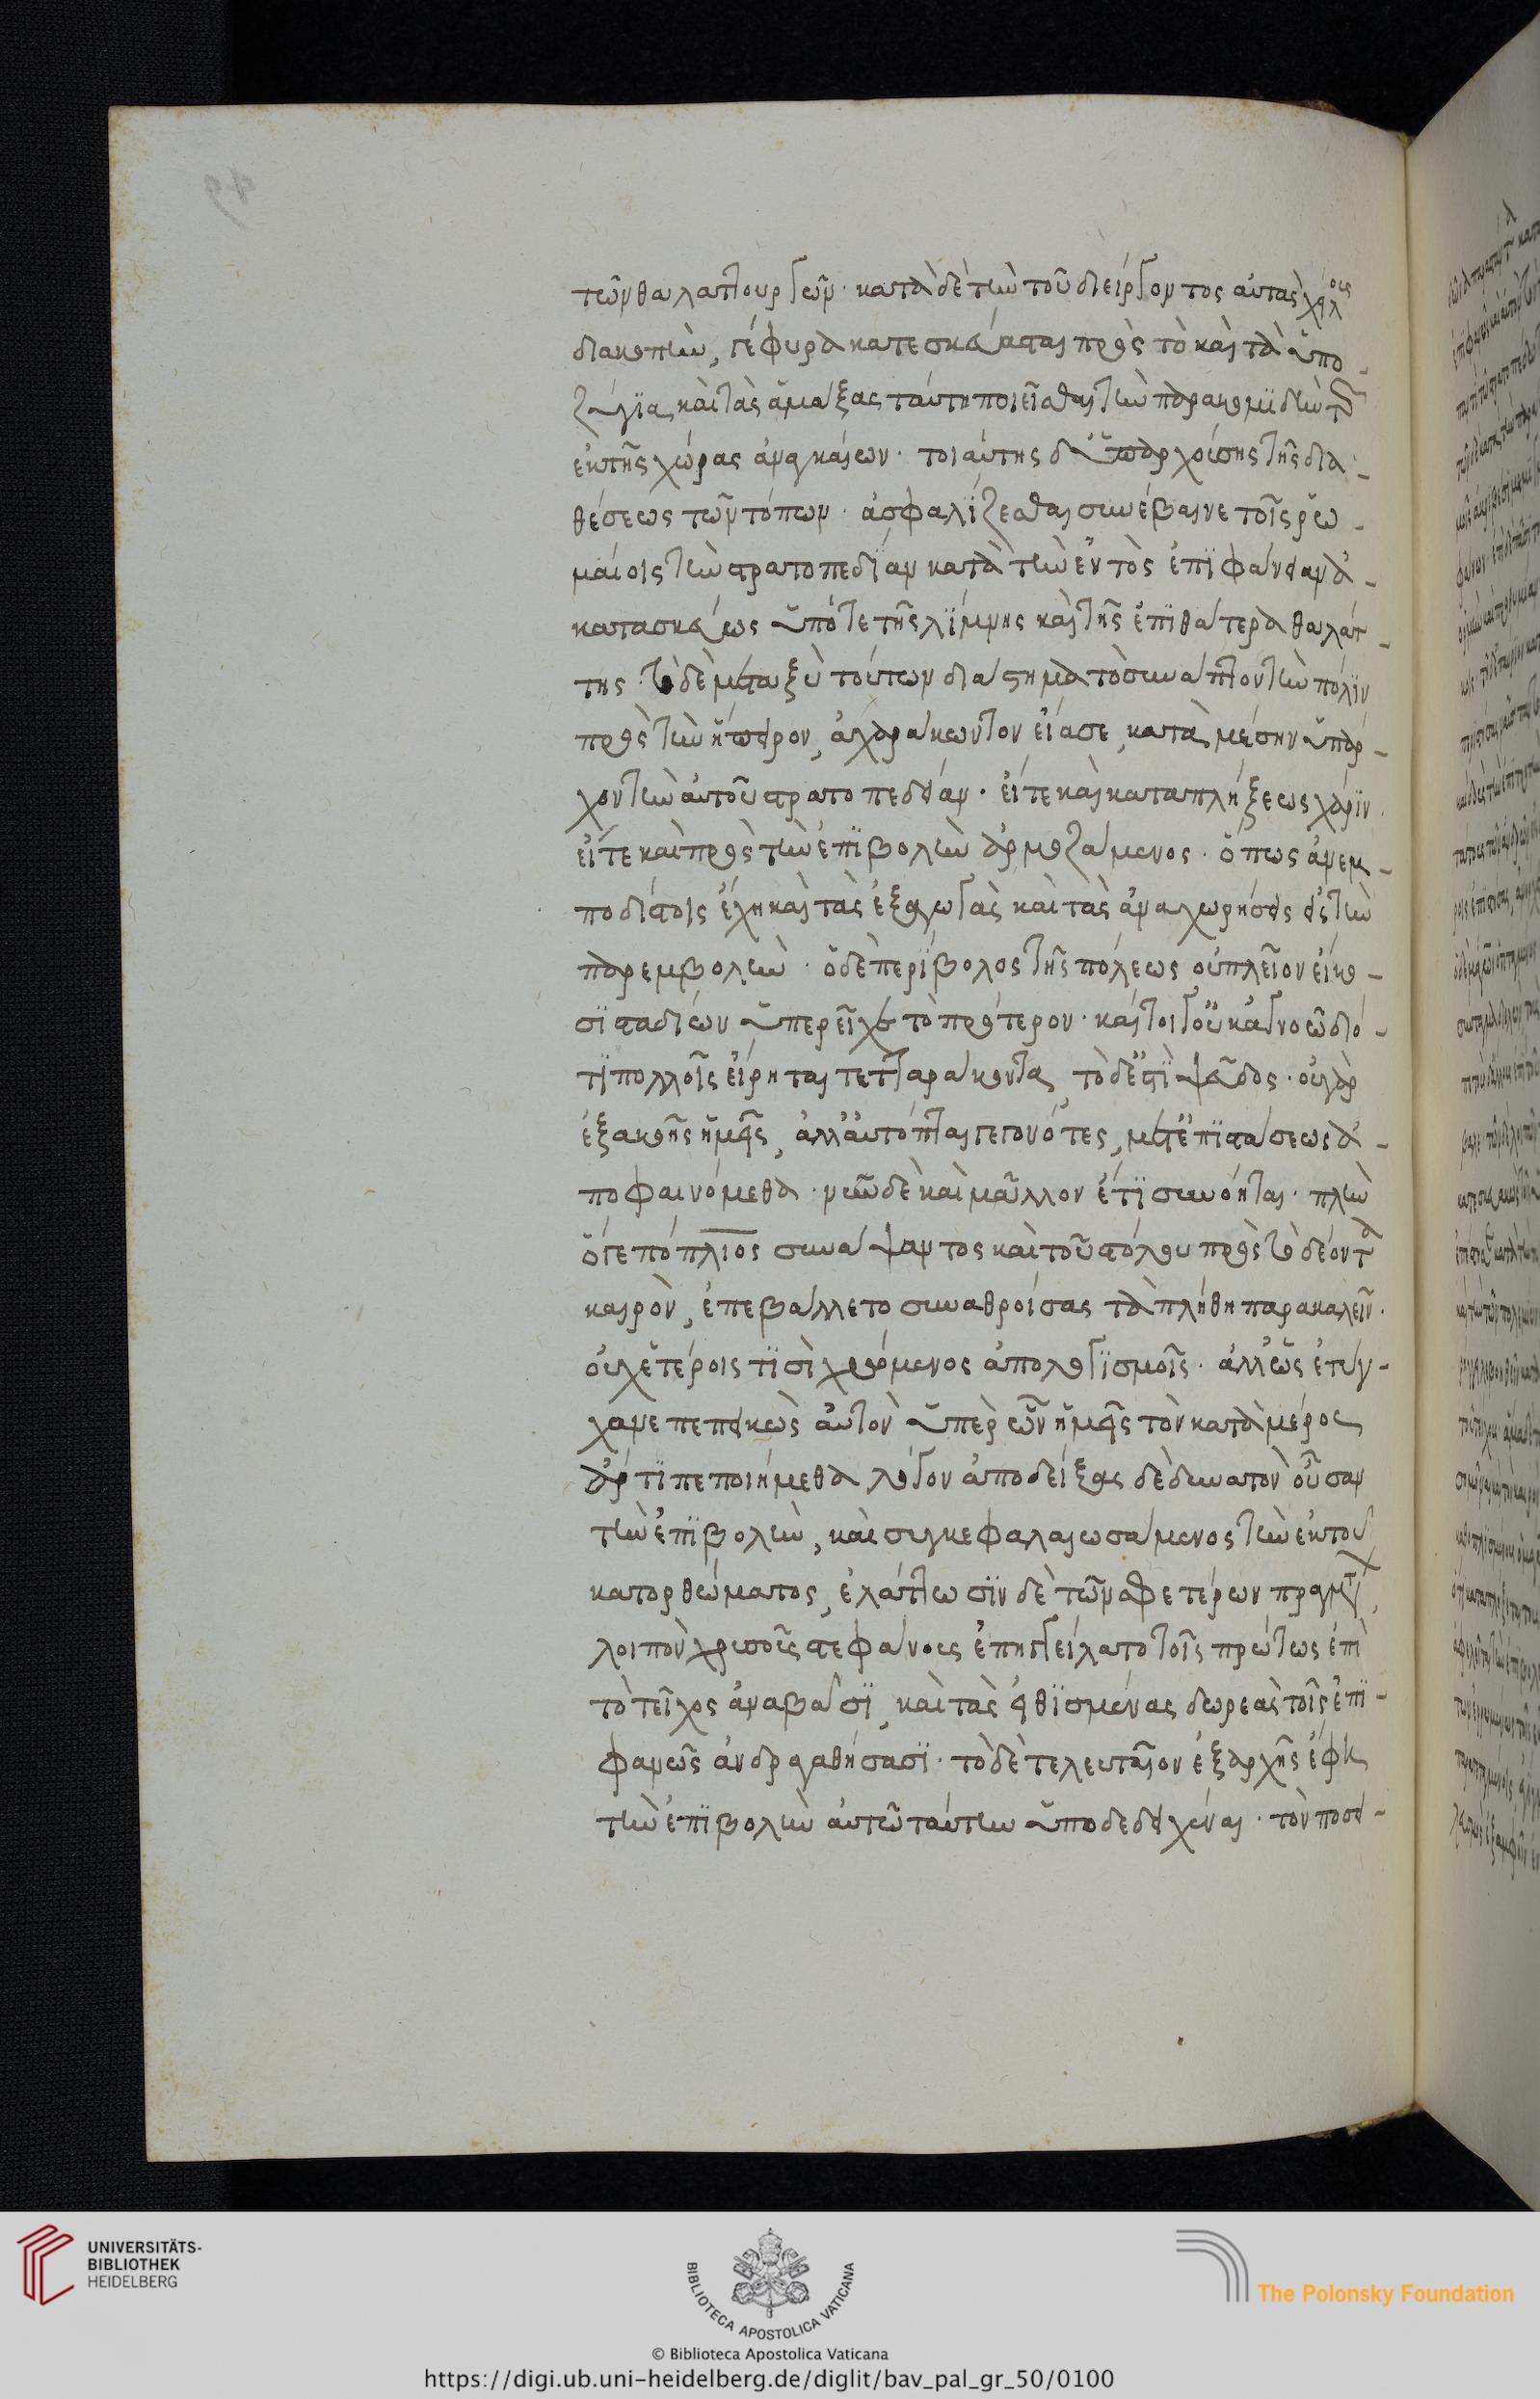 τῶν θαλαττουργῶν· κατὰ δὲ τὴν τοῦ διείργοντος αὐτὰς χείλους
διακοπὴν, γέφυρα κατεσκεύασται πρὸς τὸ καὶ τὰ ὑπο-
ζύγϊα, καὶ τὰς ἁμάξας ταύτη ποιεῖσθαι τὴν παρακομϊδὴν τῶν
ἐκ τῆς χώρας ἀναγκαίων· τοιαύτης δ' ὑπαρχούσης τῆς δια-
θέσεως τῶν τόπων· ἀσφαλΐζεσθαι συνέβαινε τοῖς ῥω-
μαίοις τὴν στρατοπεδΐαν κατὰ τὴν ἐντὸς ἐπϊφάνειαν ἀ-
κατασκεύως ὑπό τε τῆς λΐμνης καὶ τῆς ἐπϊ θάτερα θαλάτ-
της· τὸ δὲ μεταξὺ τούτων διάστημα τὸ συνάπτον τὴν πόλϊν
πρὸς τὴν ἤπειρον, ἀχαράκωντον εἴασε, κατὰ μέσην ὑπάρ-
χον τὴν αὑτοῦ στρατοπεδείαν· εἴτε καὶ καταπλήξεως χάρϊν·
εἴτε καὶ πρὸς τὴν ἐπϊβολὴν ἁρμοζάμενος· ὅπως ἀνεμ-
ποδίστοις ἔχη καὶ τὰς ἐξαγωγὰς καὶ τὰς ἀναχωρήσεις εἰς τὴν
παρεμβολὴν· ὁ δὲ περΐβολος τῆς πόλεως οὐ πλεῖον εἴκο-
σϊ σταδίων ὑπερεῖχε τὸ πρότερον· καίτοι γ' οὐκ ἀγνοῶ διό-
τϊ πολλοῖς εἴρηται τετταράκοντα, τὸ δέ ἐστϊ ψεῦδος· οὐ γὰρ
ἐξ ἀκοῆς ἡμεῖς, ἀλλ' αὐτόπται γεγονότες, μετ' ἐπϊστάσεως ἀ-
ποφαινόμεθα· νῦν δὲ καὶ μᾶλλον ἔτϊ συνόηται· πλὴν
ὅ γε πόπλιος συνάψαντος καὶ τοῦ στόλου πρὸς τὸ δέοντα
καιρὸν, ἐπεβάλλετο συναθροίσας τὰ πλήθη παρακαλεῖν·
οὐχ ἑτέροις τϊσὶ χρώμενος ἀπολογϊσμοῖς· ἀλλ' οἷς ἐτύγ-
χανε πεπεικὼς αὐτὸν ὑπὲρ ὧν ἡμεῖς τὸν κατὰ μέρος
ἄρτϊ πεποιήμεθα λόγον ἀποδείξας δὲ δυνατὸν οὖσαν
τὴν ἐπϊβολὴν, καὶ συγκεφαλαιωσάμενος τὴν ἐκ τοῦ
κατορθώματος, ἐλάττωσϊν δὲ τῶν σφετέρων πραγμάτων,
λοιπὸν χρυσοῖς στεφάνους ἐπηγγείλατο τοῖς πρώτως ἐπὶ
τὸ τεῖχος ἀναβᾶσϊ, καὶ τὰς εἰθϊσμένας δωρεὰς τοῖς ἐπϊ-
φανῶς ἀνδραγαθήσασϊ· τὸ δὲ τελευταῖον ἐξ ἀρχῆς ἔφη
τὴν ἐπϊβολὴν αὐτῶ ταύτην ὑποδεδειχέναι· τὸν ποσει-
49
UNIVERSITÄTS-
BIBLIOTHEK
HEIDELBERG
BIBLIOTECA APOSTOLICA VATICANA
The Polonsky Foundation
© Biblioteca Apostolica Vaticana
https://digi.ub.uni-heidelberg.de/diglit/bav_pal_gr_50/0100